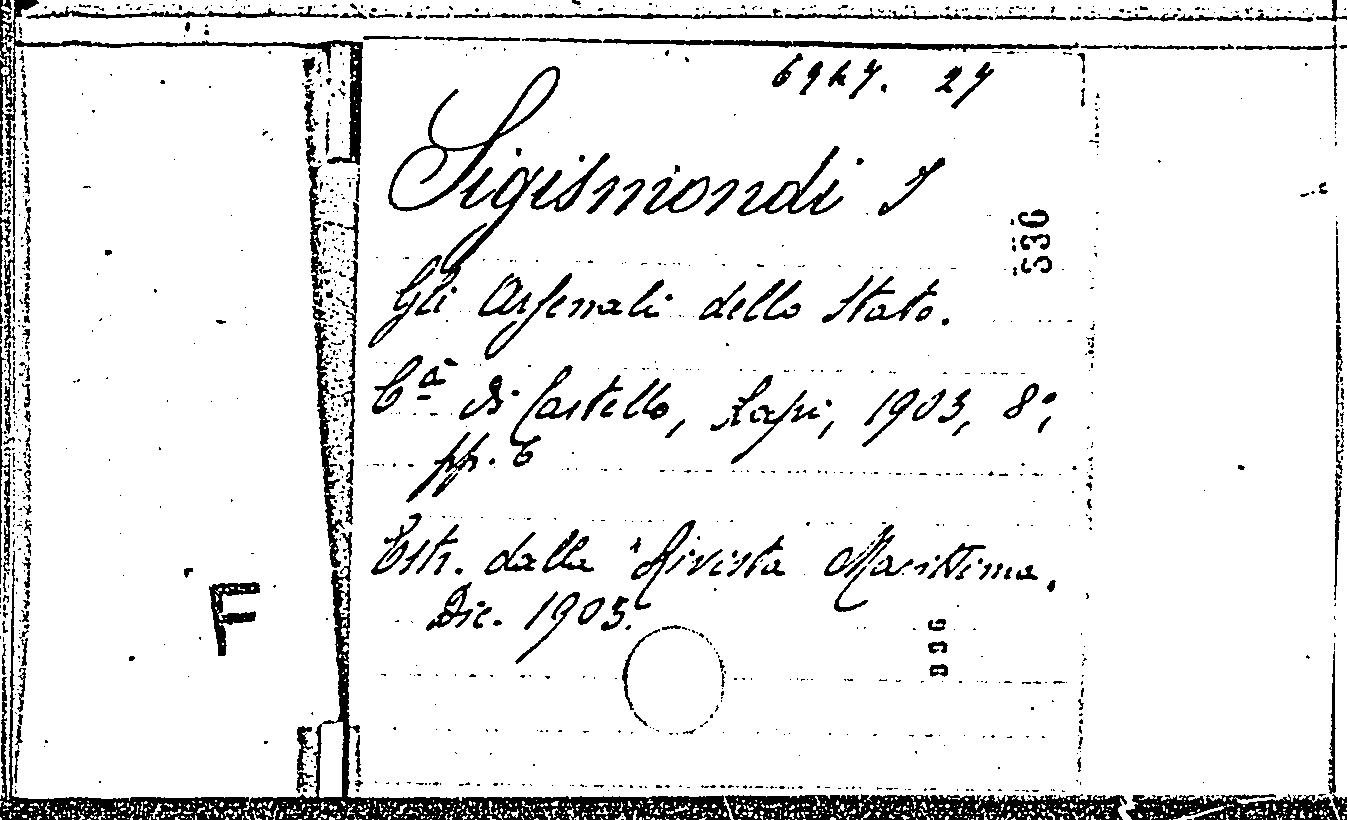 6927. 27
Sigismondi S
536
Gli Arsenali dello Stato.
C.à di Castello, Lapi, 1903, 8°,
pp. 6
Estr. dalla "Rivista Marittima.
Dic. 1903.
F